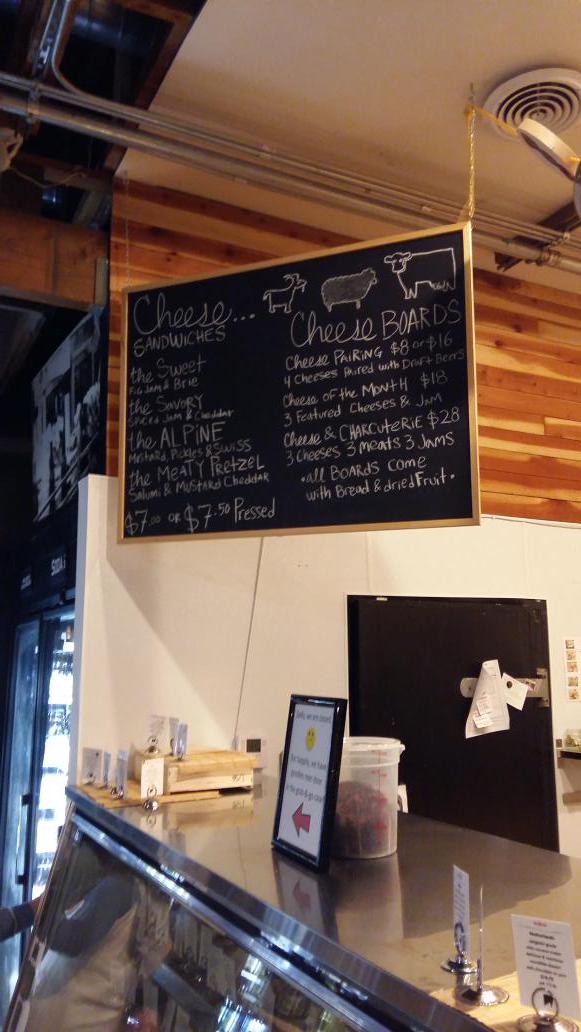 Cheese...
SANDWICHES
the Sweet
Fig Jam & Brie
the Savory
Spiced Jam & Cheddar
the ALPINE
Mustard, Pickles & Swiss
the MEATY Pretzel
Salumi & MUSTARD Cheddar
$7.00 OR $7.50 Pressed
Cheese BOARDS
Cheese PAIRING $8 or $16
4 Cheeses Paired with Draft Beers
Cheese of the MONTH $18
3 Featured Cheeses & Jam
Cheese & CHARCUTERIE $28
3 Cheeses 3 meats 3 JAMS
•all BOARDS come
with Bread & dried Fruit•
SODA
Hello, we are closed
but happily, we have
goodies next door
in the grab & go case
Netherlands